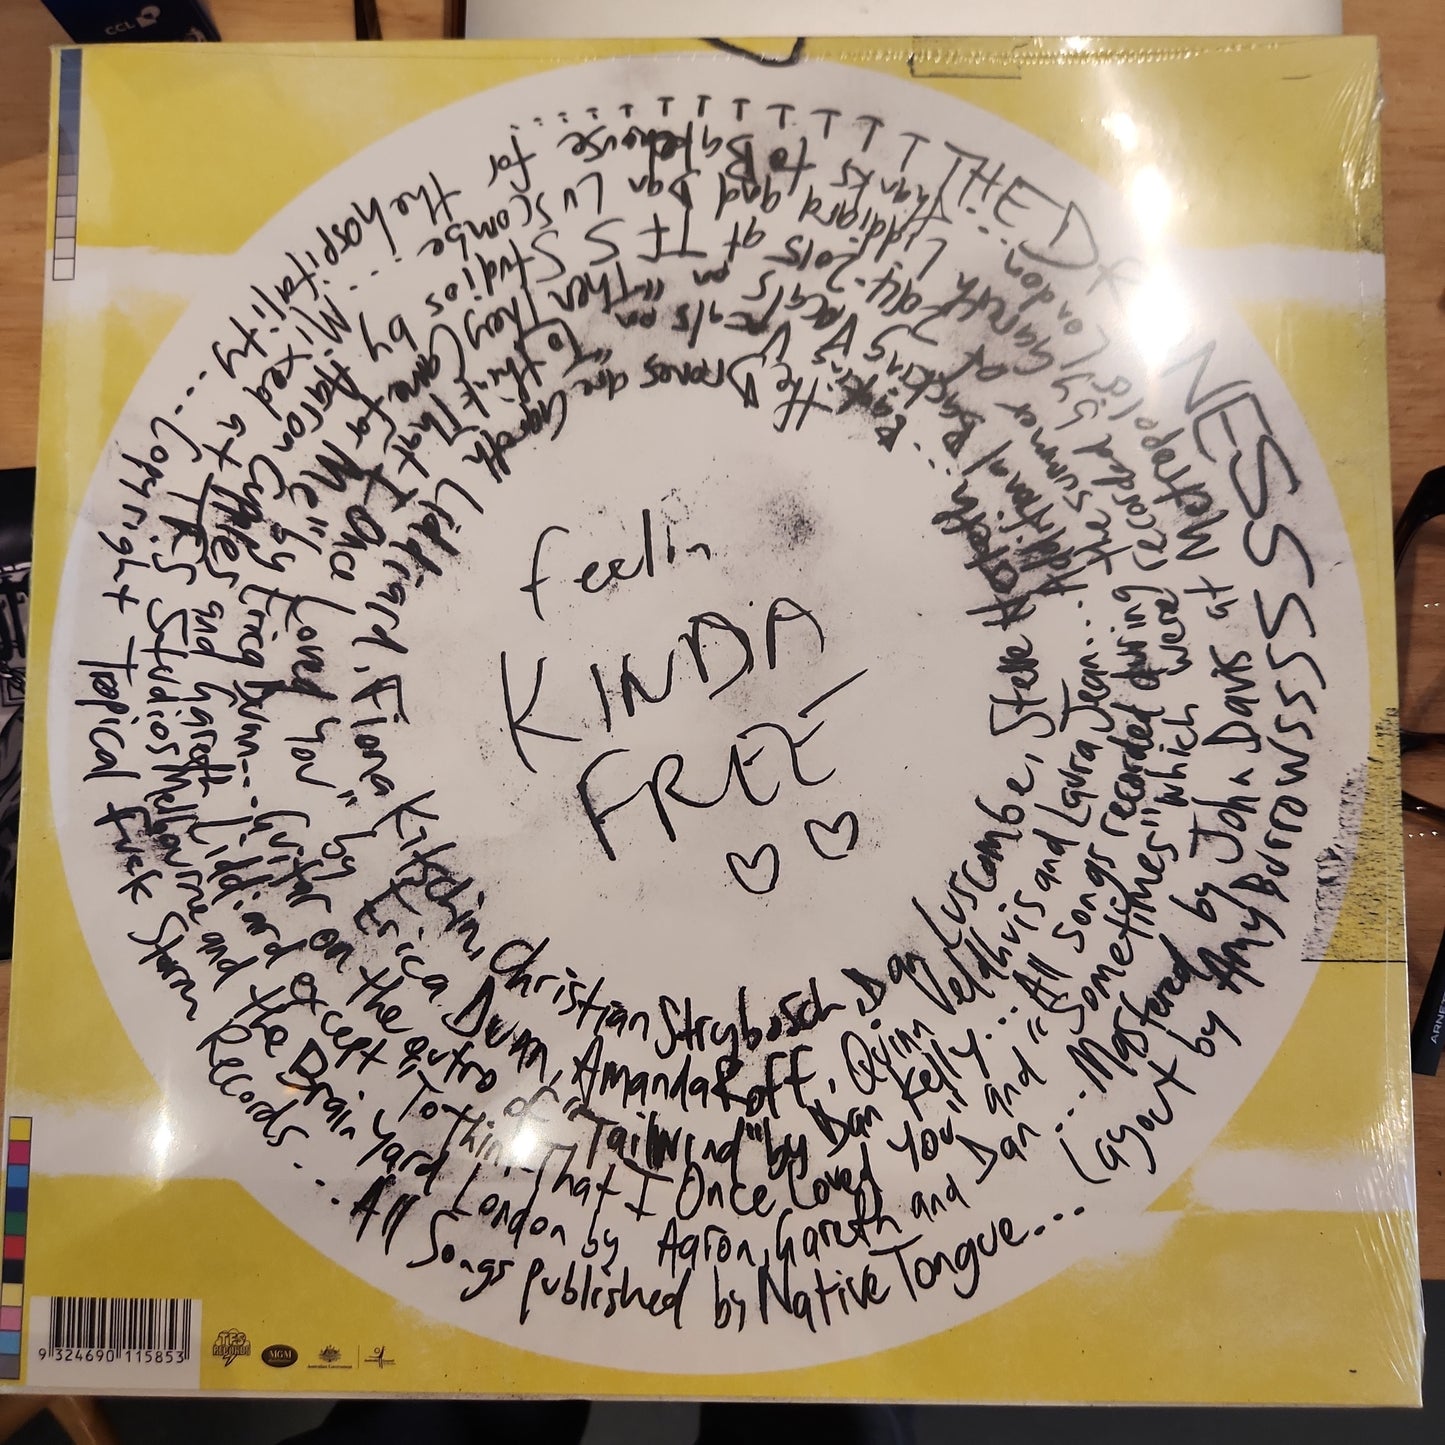 feelin
KINDA
FREE
The Drones are Gareth Liddiard, Fiona Kitschin, Christian Strybosch, Dan Luscombe, Steve Hesketh...
Backing Vocals on "To think That I Once Loved You" by Erica Dunn, Amanda Roff, Quinn Veldhuis and Laura Jean...
Additional Backing Vocals on "Then They Came for Me" by Erica Dunn... Guitar on the outro of "Tailwind" by Dan Kelly... All songs recorded during
the summer of 2015 at TFS Studios by Aaron Cupples and Gareth Liddiard except "To think That I Once Loved You" and "Sometimes" which were
recorded by Gareth Liddiard and Dan Luscombe... Mixed at TFS Studios Melbourne and the Brain Yard London by Aaron, Gareth and Dan... Mastered by John Davis at
Metropolis London... Thanks to Bakehouse for the hospitality... Copyright Tropical Fuck Storm Records... All Songs published by Native Tongue... Layout by Amy Burrowsssss
9 324690 115853
TFS RECORDS
MGM
Australian Government
CCL